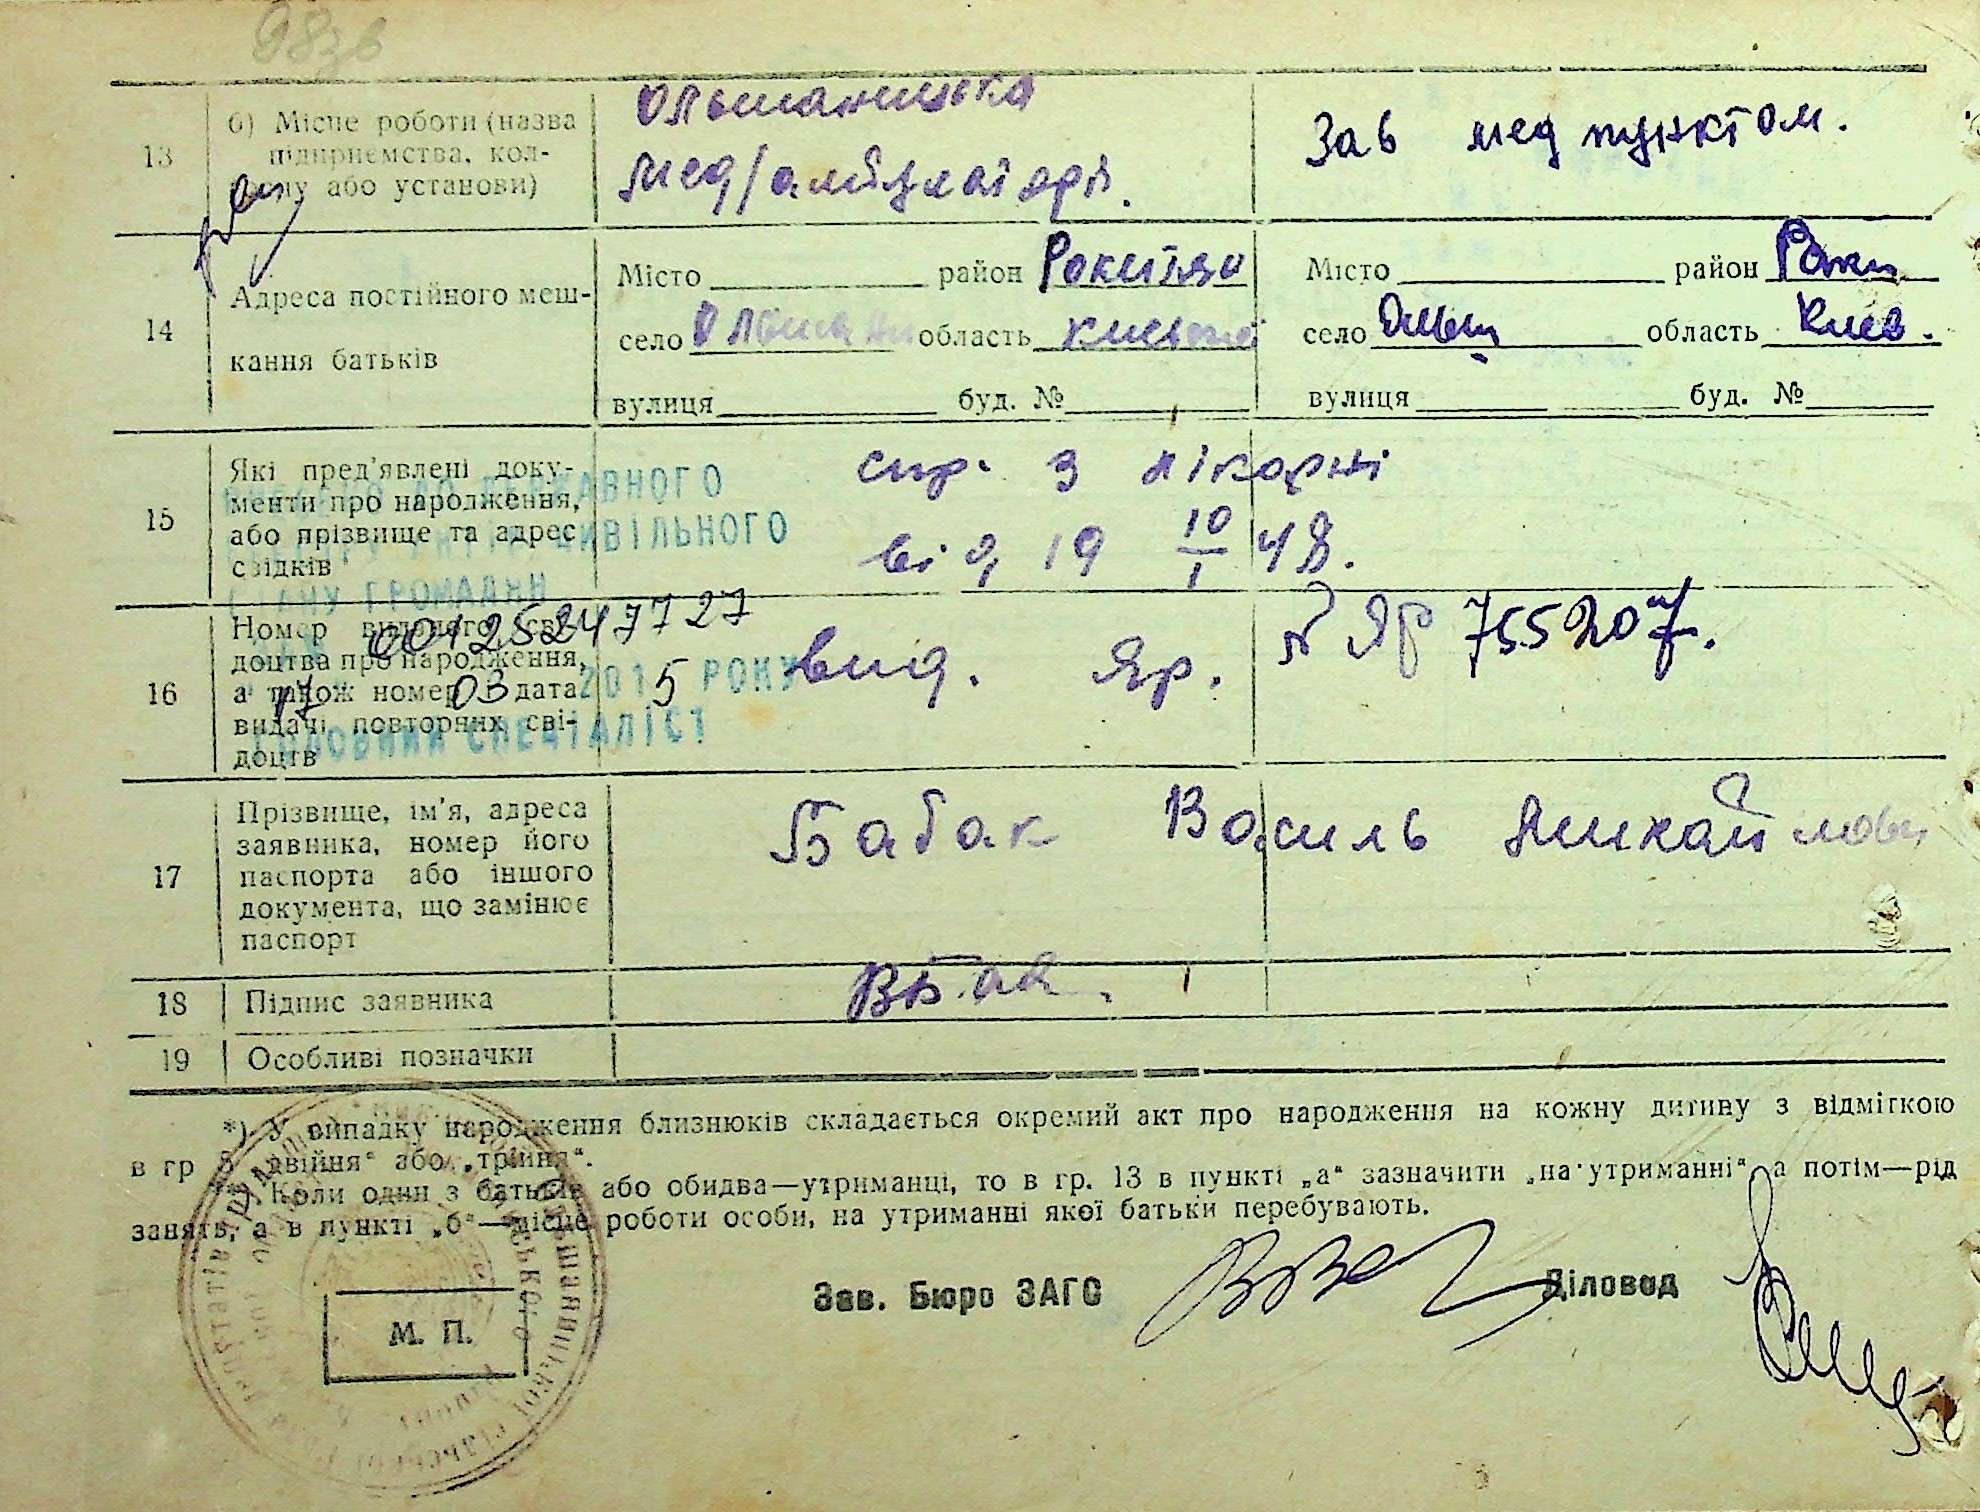 98зв
13 б) Місце роботи (назва
підприємства, кол-
госпу або установи)
Ольшаницька
мед/амбулаторія.
Зав мед пунктом.
14 Адреса постійного меш-
кання батьків
Місто район Рокитян
село Ольшани область Київської
вулиця буд. №
Місто район Роки
село Ольш область Киев.
вулиця буд. №
15 Які пред'явлені доку-
менти про народження,
або прізвище та адрес
свідків
спр. з лікарні
від 19 10/I 48.
ДЕРЖАВНОГО
ЦИВІЛЬНОГО
СТАНУ ГРОМАДЯН
00125247727
17 03 2015 РОКУ
ГОЛОВНИЙ СПЕЦІАЛІСТ
16 Номер виданого сві-
доцтва про народження,
а також номер дата
видачі повторних сві-
доцтв
вид. Яр.
№ ЯР 755207.
17 Прізвище, ім'я, адреса
заявника, номер його
паспорта або іншого
документа, що замінює
паспорт
Бабак Василь Михайлович
18 Підпис заявника
19 Особливі позначки
*) У випадку народження близнюків складається окремий акт про народження на кожну дитину з відміткою
в гр 8 „двійня“ або „трійня“.
Коли один з батьків або обидва—утриманці, то в гр. 13 в пункті „а“ зазначити „на утриманні“ а потім—рід
занять, а в пункті „б“—місце роботи особи, на утриманні якої батьки перебувають.
М. П.
Зав. Бюро ЗАГС
Діловод